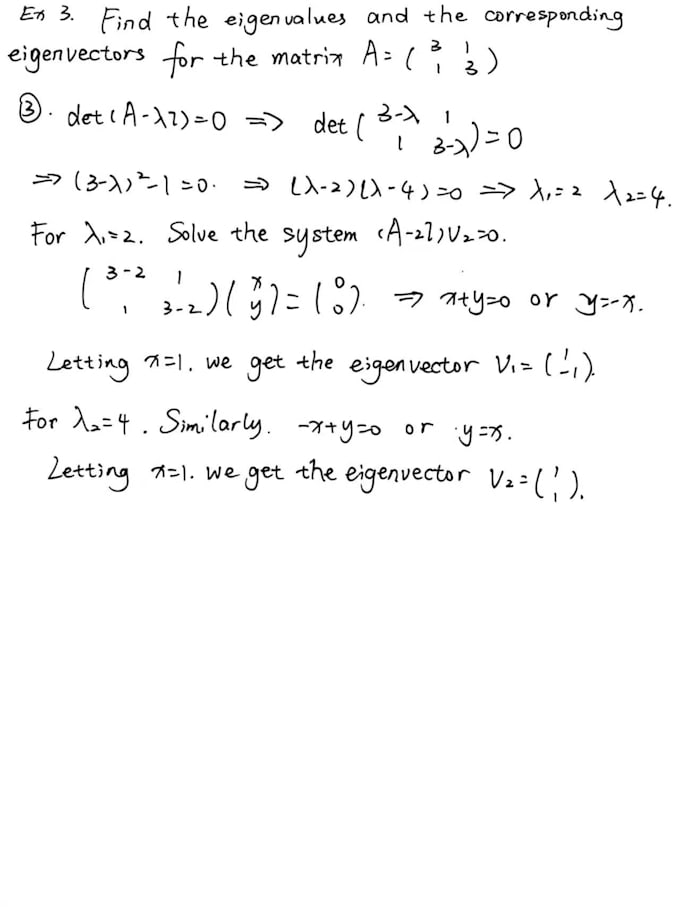 Ex 3. Find the eigenvalues and the corresponding
eigenvectors for the matrix A = ( 3 1 ; 1 3 )
③. det(A-λI)=0 ⇒ det ( 3-λ 1 ; 1 3-λ ) = 0
⇒ (3-λ)²-1=0. ⇒ (λ-2)(λ-4)=0 ⇒ λ₁=2 λ₂=4.
For λ₁=2. Solve the system (A-2I)V₂=0.
( 3-2 1 ; 1 3-2 ) ( x ; y ) = ( 0 ; 0 ). ⇒ x+y=0 or y=-x.
Letting x=1. we get the eigenvector V₁ = ( 1 ; -1 ).
For λ₂=4. Similarly. -x+y=0 or y=x.
Letting x=1. we get the eigenvector V₂ = ( 1 ; 1 ).